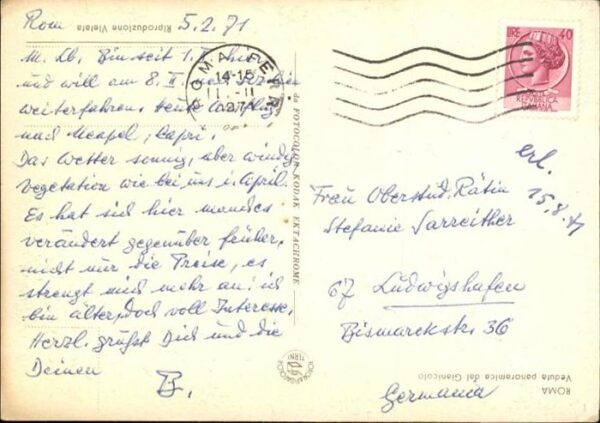 Rom 5.2.71
M. Lb. Bin seit 1. II hier
und will am 8. II
weiterfahren. heute Ausflug
nach Neapel, Capri.
Das Wetter sonnig, aber windig
Vegetation wie bei uns i. April.
Es hat sich hier manches
verändert gegenüber früher,
nicht nur die Preise, es
strengt mich mehr an: ich
bin älter, doch voll Interesse.
Herzl. grüßt Dich und die
Deinen
Riproduzione Vietata
ROMA FERR
14-15
II
da FOTOCOLOR KODAK EKTACHROME
LIRE 40
REPUBBLICA
ITALIANA
erl.
15.8.71
Frau Oberstud. Rätin
Stefanie Sarreither
67 Ludwigshafen
Bismarckstr. 36
Germania
ROMA
Veduta panoramica dal Gianicolo